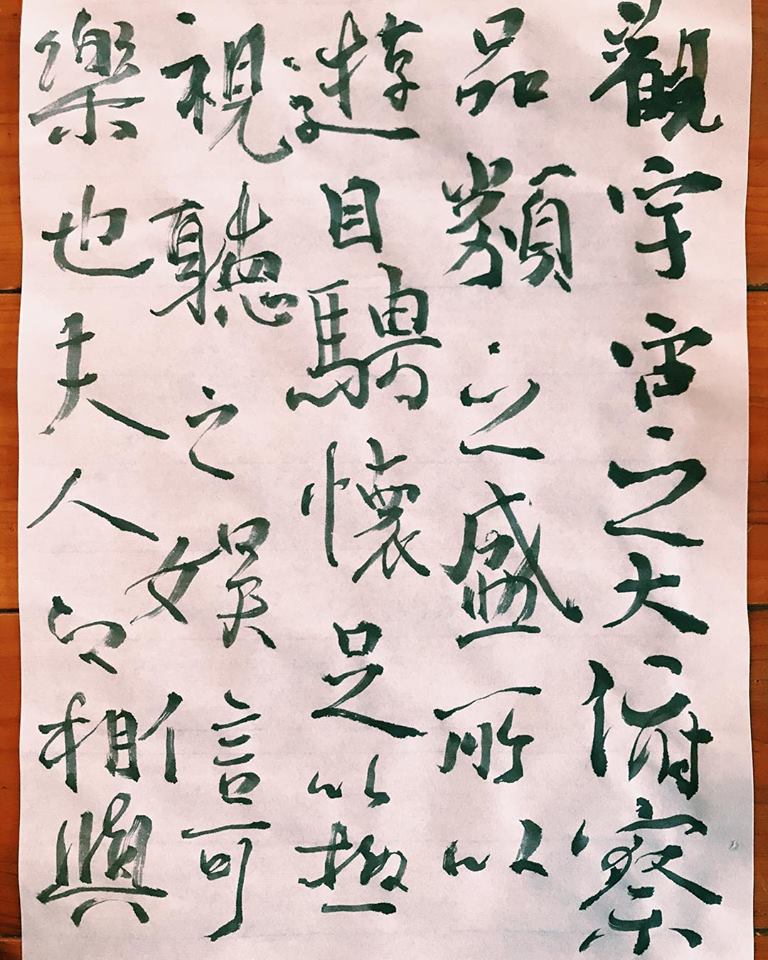 觀宇宙之大俯察
品類之盛所以
遊目騁懷足以極
視聽之娛信可
樂也夫人之相與